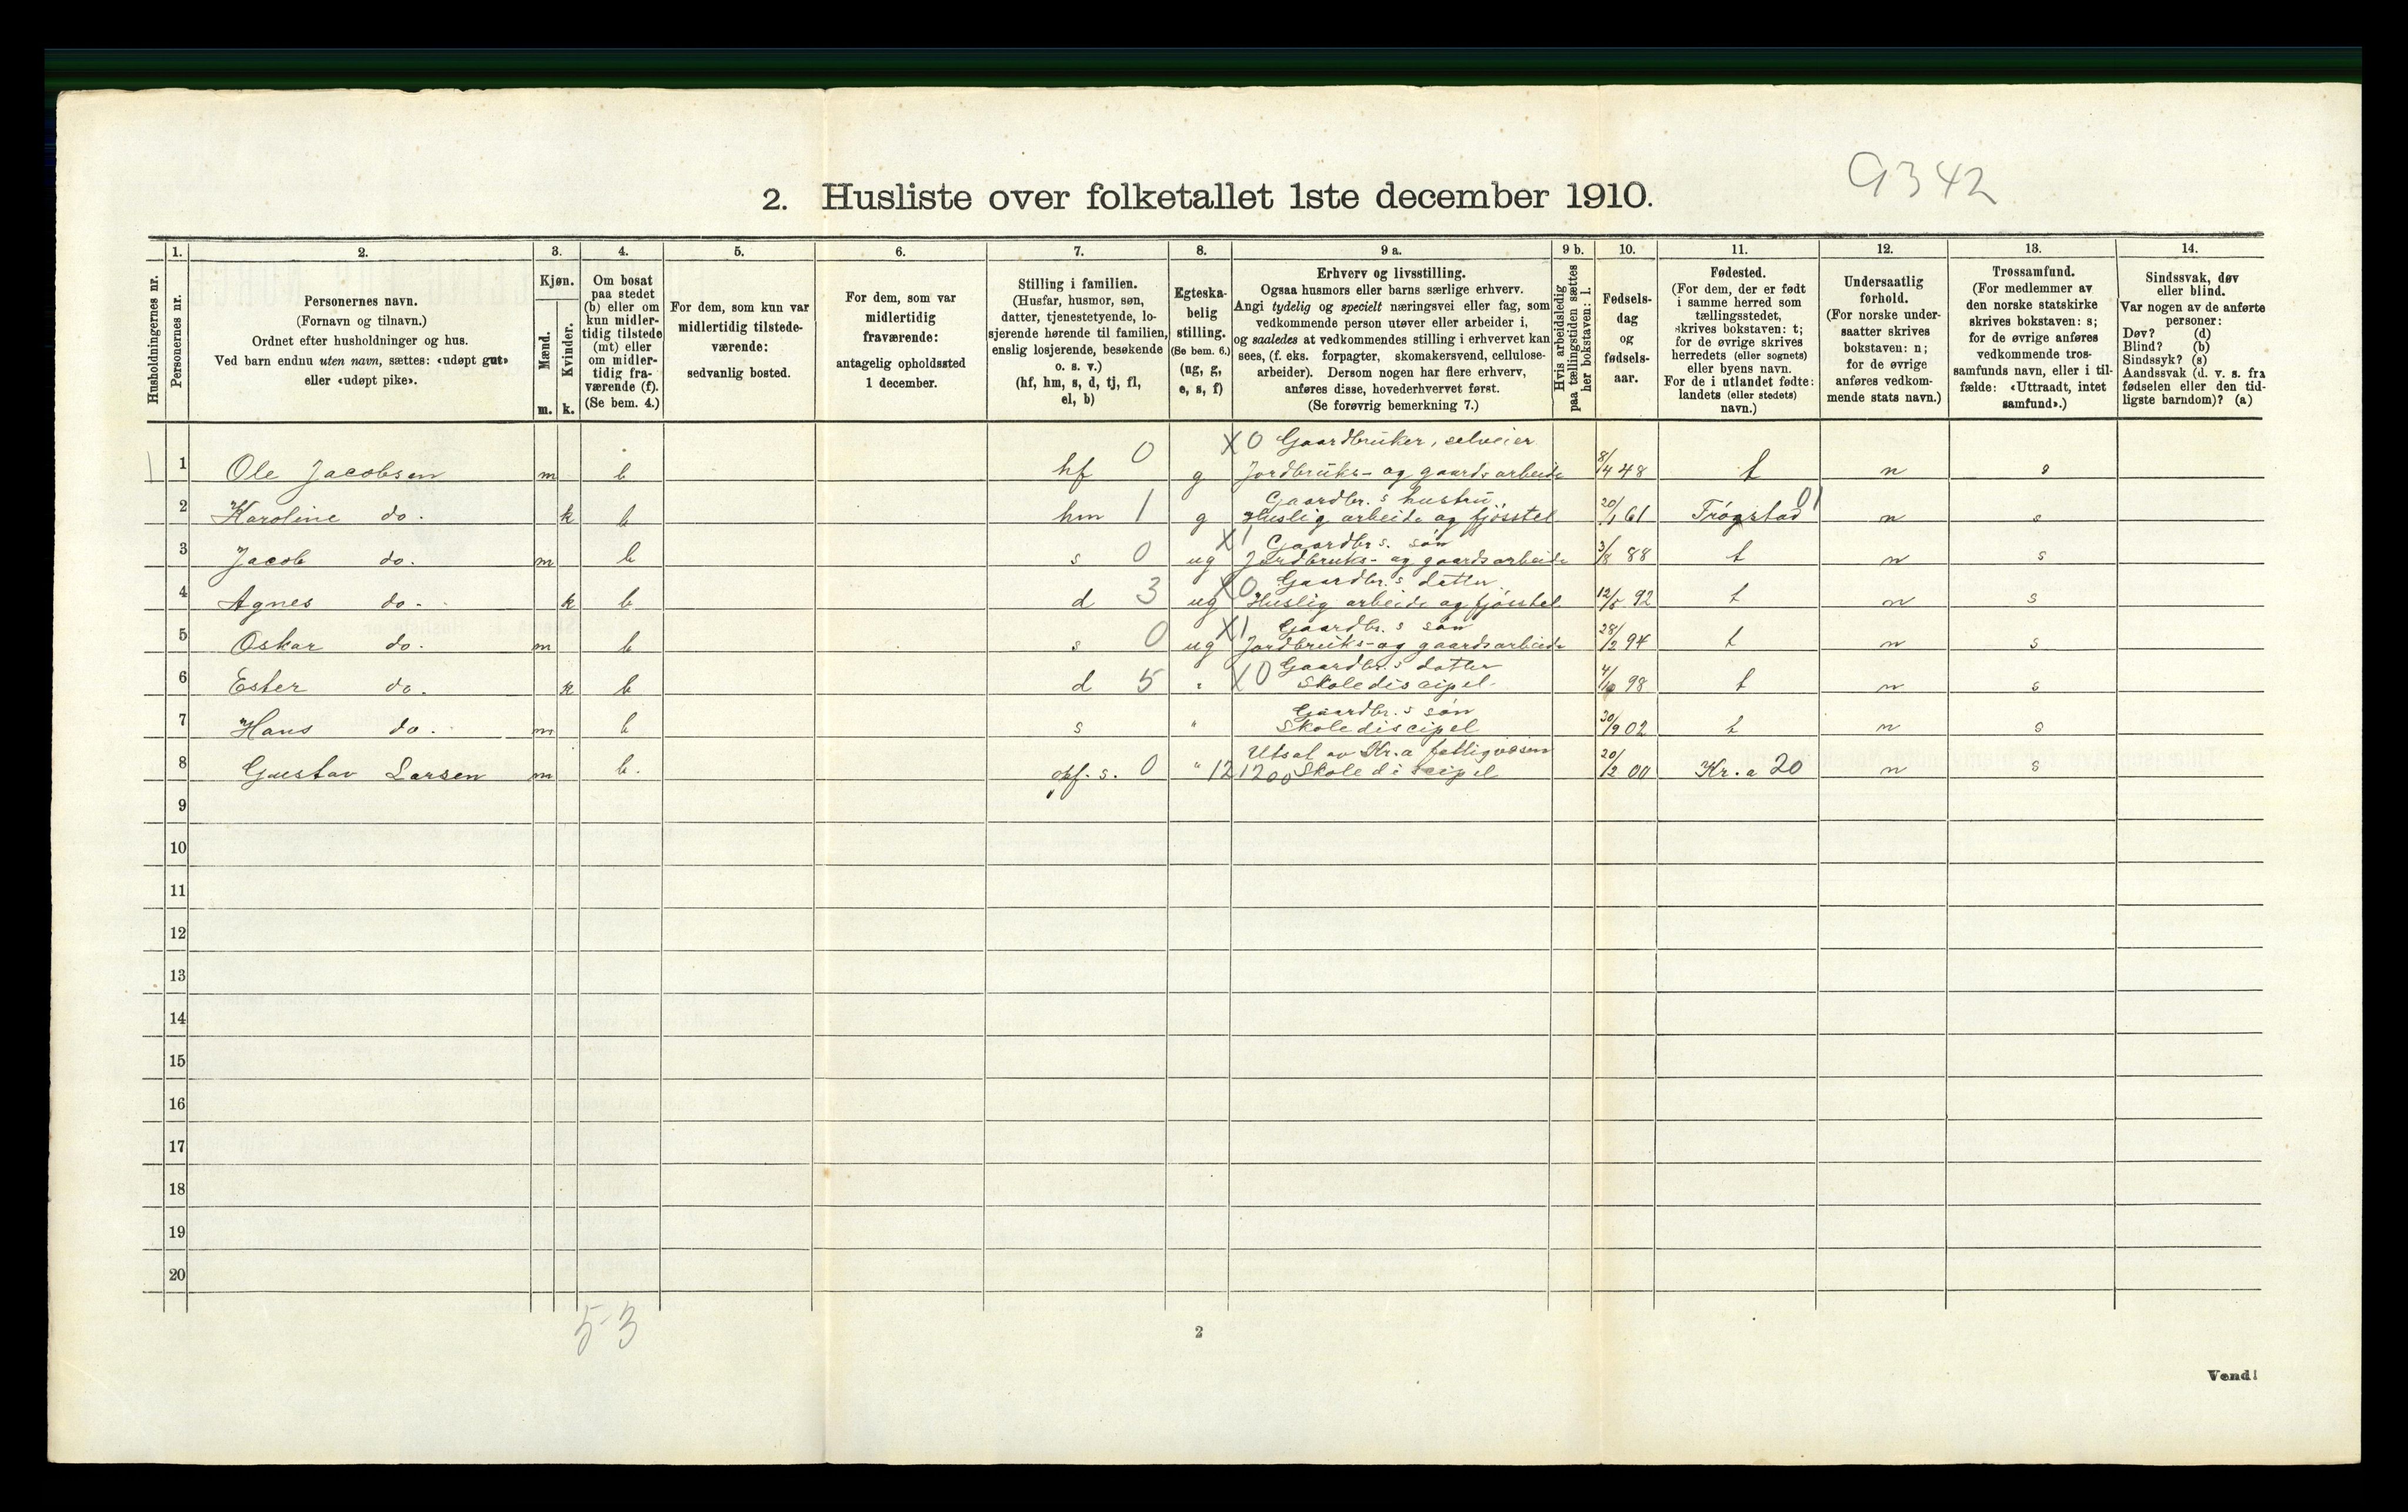 9342
2. Husliste over folketallet 1ste december 1910.
Husholdningernes nr.
1.
Personernes nr.
2.
Personernes navn.
(Fornavn og tilnavn.)
Ordnet efter husholdninger og hus.
Ved barn endnu uten navn, sættes: «udøpt gut»
eller «udøpt pike».
3.
Kjøn.
Mænd.
Kvinder.
m. k.
4.
Om bosat
paa stedet
(b) eller om
kun midler-
tidig tilstede
(mt) eller
om midler-
tidig fra-
værende (f).
(Se bem. 4.)
5.
For dem, som kun var
midlertidig tilstede-
værende:
sedvanlig bosted.
6.
For dem, som var
midlertidig
fraværende:
antagelig opholdssted
1 december.
7.
Stilling i familien.
(Husfar, husmor, søn,
datter, tjenestetyende, lo-
sjerende hørende til familien,
enslig losjerende, besøkende
o. s. v.)
(hf, hm, s, d, tj, fl,
el, b)
8.
Egteska-
belig
stilling.
(Se bem. 6.)
(ug, g,
e, s, f)
9 a.
Erhverv og livsstilling.
Ogsaa husmors eller barns særlige erhverv.
Angi tydelig og specielt næringsvei eller fag, som
vedkommende person utøver eller arbeider i,
og saaledes at vedkommendes stilling i erhvervet kan
sees, (f. eks. forpagter, skomakersvend, cellulose-
arbeider). Dersom nogen har flere erhverv,
anføres disse, hovederhvervet først.
(Se forøvrig bemerkning 7.)
9 b.
Hvis arbeidsledig
paa tællingstiden sættes
her bokstaven: l.
10.
Fødsels-
dag
og
fødsels-
aar.
11.
Fødested.
(For dem, der er født
i samme herred som
tællingsstedet,
skrives bokstaven: t;
for de øvrige skrives
herredets (eller sognets)
eller byens navn.
For de i utlandet fødte:
landets (eller stedets)
navn.)
12.
Undersaatlig
forhold.
(For norske under-
saatter skrives
bokstaven: n;
for de øvrige
anføres vedkom-
mende stats navn.)
13.
Trossamfund.
(For medlemmer av
den norske statskirke
skrives bokstaven: s;
for de øvrige anføres
vedkommende tros-
samfunds navn, eller i til-
fælde: «Uttraadt, intet
samfund».)
14.
Sindssvak, døv
eller blind.
Var nogen av de anførte
personer:
Døv? (d)
Blind? (b)
Sindssyk? (s)
Aandssvak (d. v. s. fra
fødselen eller den tid-
ligste barndom)? (a)
X 0 Gaardbruker, selveier
1 1 Ole Jacobsen m b hf 0 g Jordbruks- og gaardsarbeide 8/4 48 t n s
Gaardbr. s hustru
2 Karoline do. k b hm 1 g Huslig arbeide og fjösstel 20/1 61 Trögstad 01 n s
X 1 Gaardbr s. sön
3 Jacob do. m b s 0 ug Jordbruks- og gaardsarbeide 3/8 88 t n s
X 0 Gaardbr. s datter
4 Agnes do. k b d 3 ug Huslig arbeide og fjösstel 12/5 92 t n s
X 1 Gaardbr. s sön
5 Oskar do. m b s 0 ug Jordbruks- og gaardsarbeide 28/2 94 t n s
X 0 Gaardbr. s datter
6 Ester do. k b d 5 " Skolediscipel 4/10 98 t n s
Gaardbr. s sön
7 Hans do. m b s " Skolediscipel 30/9 02 t n s
Utsat av Kr.a fattigvæsen
8 Gustav Larsen m b. opf. s. 0 " 12 1200 Skolediscipel 20/2 00 Kr.a 20 n s
9
10
11
12
13
14
15
16
17
18
19
20
5-3
2
Vend!